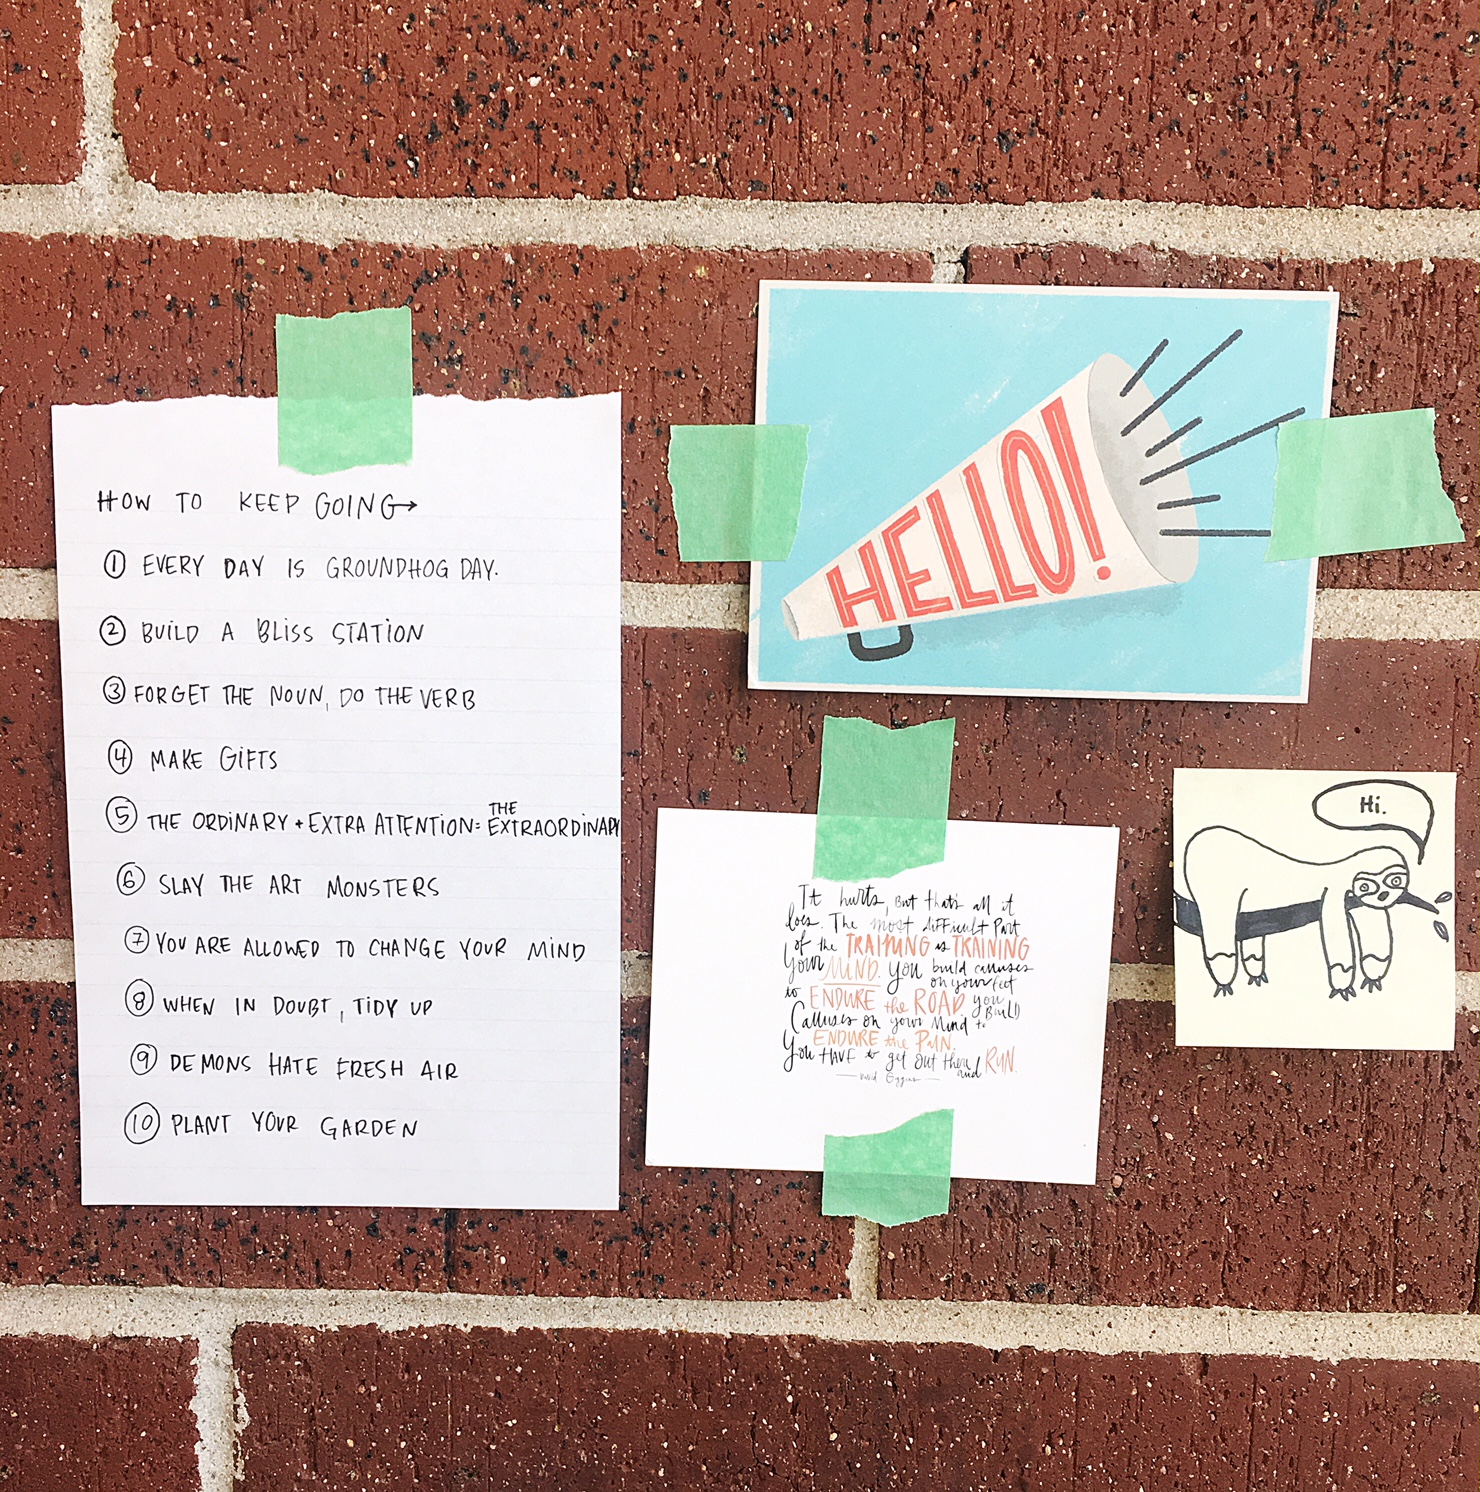 HOW TO KEEP GOING→
① EVERY DAY IS GROUNDHOG DAY.
② BUILD A BLISS STATION
③ FORGET THE NOUN, DO THE VERB
④ MAKE GIFTS
⑤ THE ORDINARY + EXTRA ATTENTION = THE EXTRAORDINARY
⑥ SLAY THE ART MONSTERS
⑦ YOU ARE ALLOWED TO CHANGE YOUR MIND
⑧ WHEN IN DOUBT, TIDY UP
⑨ DEMONS HATE FRESH AIR
⑩ PLANT YOUR GARDEN
HELLO!
It hurts, but that's all it
does. The most difficult part
of the TRAINING is TRAINING
your MIND. You build calluses
on your feet
to ENDURE the ROAD. you
BUILD
Calluses on your Mind to
ENDURE the PAIN.
You HAVE to get out there
and RUN.
Hi.